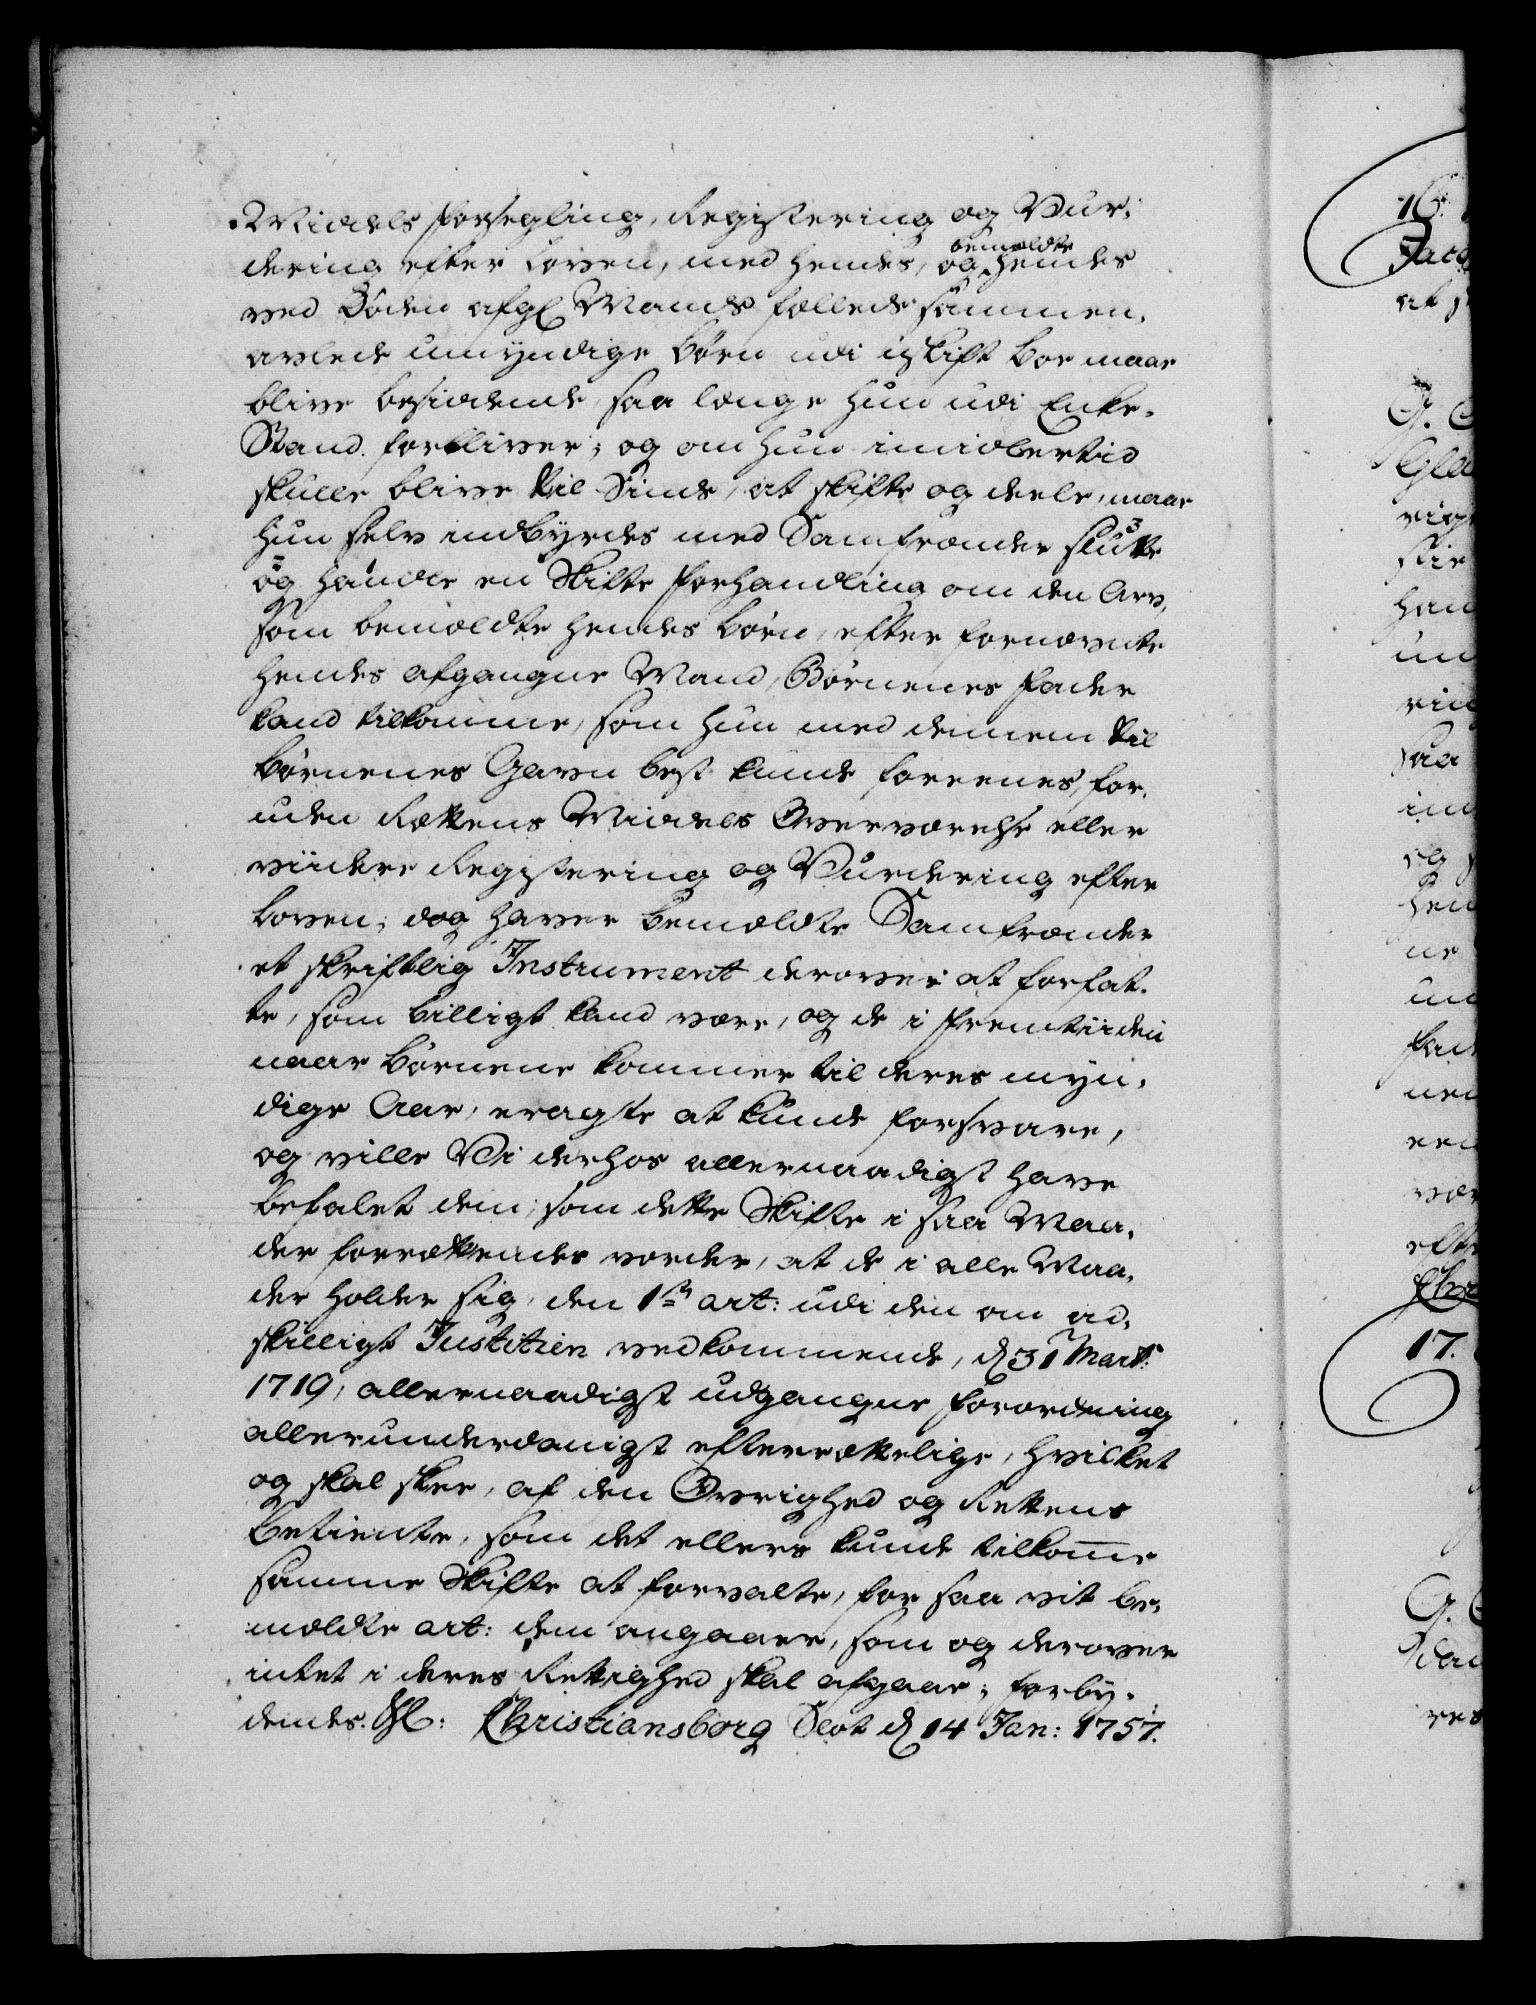 Middels forsegling, Registering og Vur-
dering efter Loven, med hendes, og bemeldte hendes
ved Døden afg: Mands fælleds sammen-
avlede umyndige Børn udi uskift Boe maae
blive besiddende saa længe hun udi Enke-
Stand forbliver; og om hun imidlertid
skulle blive til Sinds, at skifte og deele, maae
hun selv indbyrdes med Samfrænder slutte
og handle en Skifte forhandling om den Arv,
som bemeldte hendes Børn, efter fornævnte
hendes afgangne Mand, Børnenes Fader
kand tilkomme, som hun med dennem til
Børnenes Gavn best kunde foreenes, for-
uden Rettens Middels Overværelse eller
viidere Registering og Vurdering efter
Loven; dog haver bemeldte Samfrænder
et skriftlig Instrument derover at forfat-
te, som billigt kand være, og de i fremtiiden
naar Børnene kommer til deres myn-
dige Aar, eragte at kunde forsvare,
og ville Vi derhos allernaadigst have
befalet dem, som dette Skifte i saa Maa-
der forrettendes vorder, at de i alle Maa-
der holder sig den 1ste art: udi den om ad-
skilligt Justitien vedkommende, d 31 Mart:
1719, allernaadigst udgangne forordning
allerunderdanigst efterrettelige, hvilket
og skal skee, af den Øvrighed og Rettens
Betiente, som det ellers kunde tilkomme
samme Skifte at forvalte, for saa vit be-
meldte art: dem angaaer, som og derover
intet i deres Rettighed skal afgaae; forby-
dendes. Chr: Christiansborg Slot d 14 Jan: 1757.
16.
17.